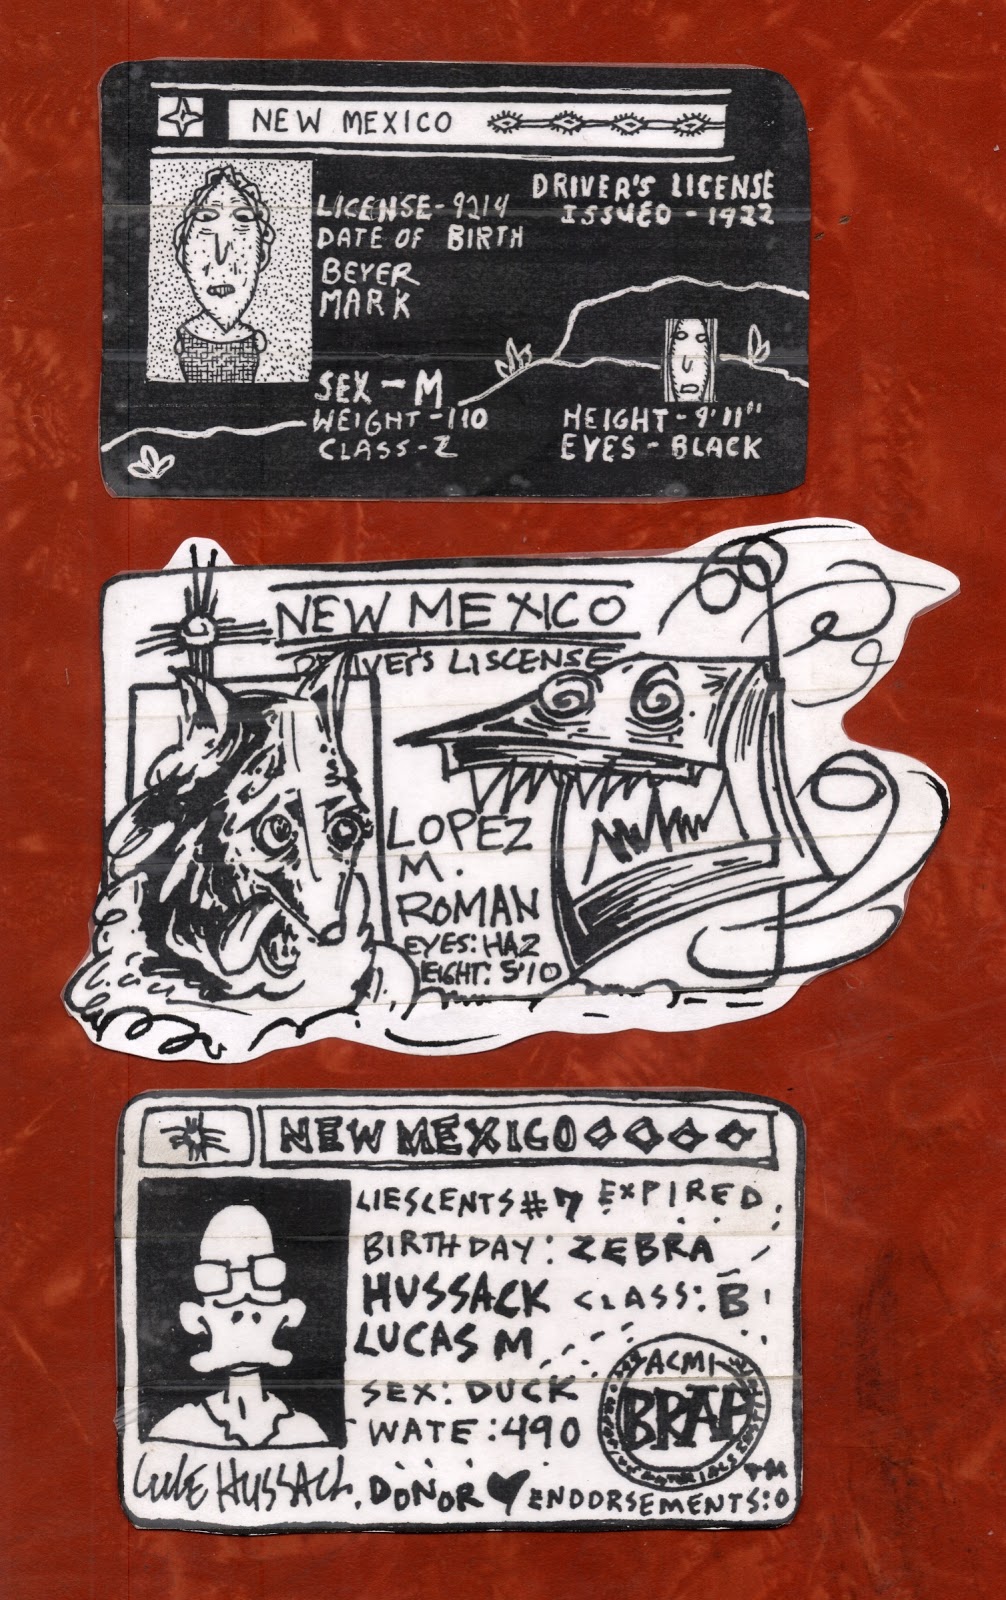 NEW MEXICO
DRIVER'S LICENSE
ISSUED - 1922
LICENSE - 9214
DATE OF BIRTH
BEYER
MARK
SEX - M
WEIGHT - 110
CLASS - Z
HEIGHT - 9'11"
EYES - BLACK
NEW MEXICO
LISCENSE
LOPEZ
M.
ROMAN
EYES: HAZ
EIGHT: 5'10
NEW MEXICO
LIESCENTS #7 EXPIRED
BIRTHDAY: ZEBRA
HUSSACK CLASS: B
LUCAS M
SEX: DUCK
WATE: 490
ACMI
BRAF
MATERIALS
TM
LUKE HUSSACK. DONOR ♥ ENDORSEMENTS: 0